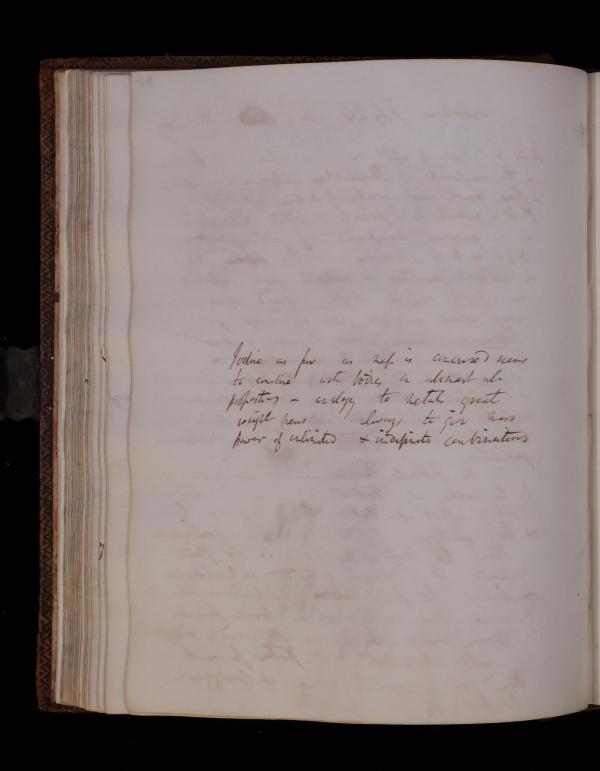 Iodine as far as mass is concerned seems
to combine with bodies in almost all
proportions - analogy to metals great
weight seems always to give more
power of unlimited & indefinite combinations